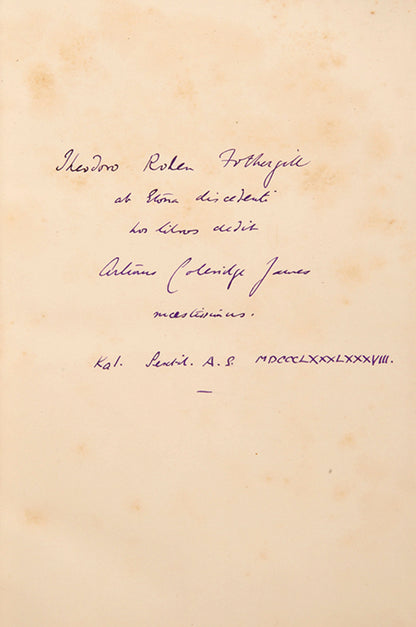 Theodoro Roden Fothergill
ab Etona discedenti
hos libros dedit
Arturus Coleridge James
mœstissimus.
Kal. Sextil. A. S. MDCCCLXXXLXXXVIII.